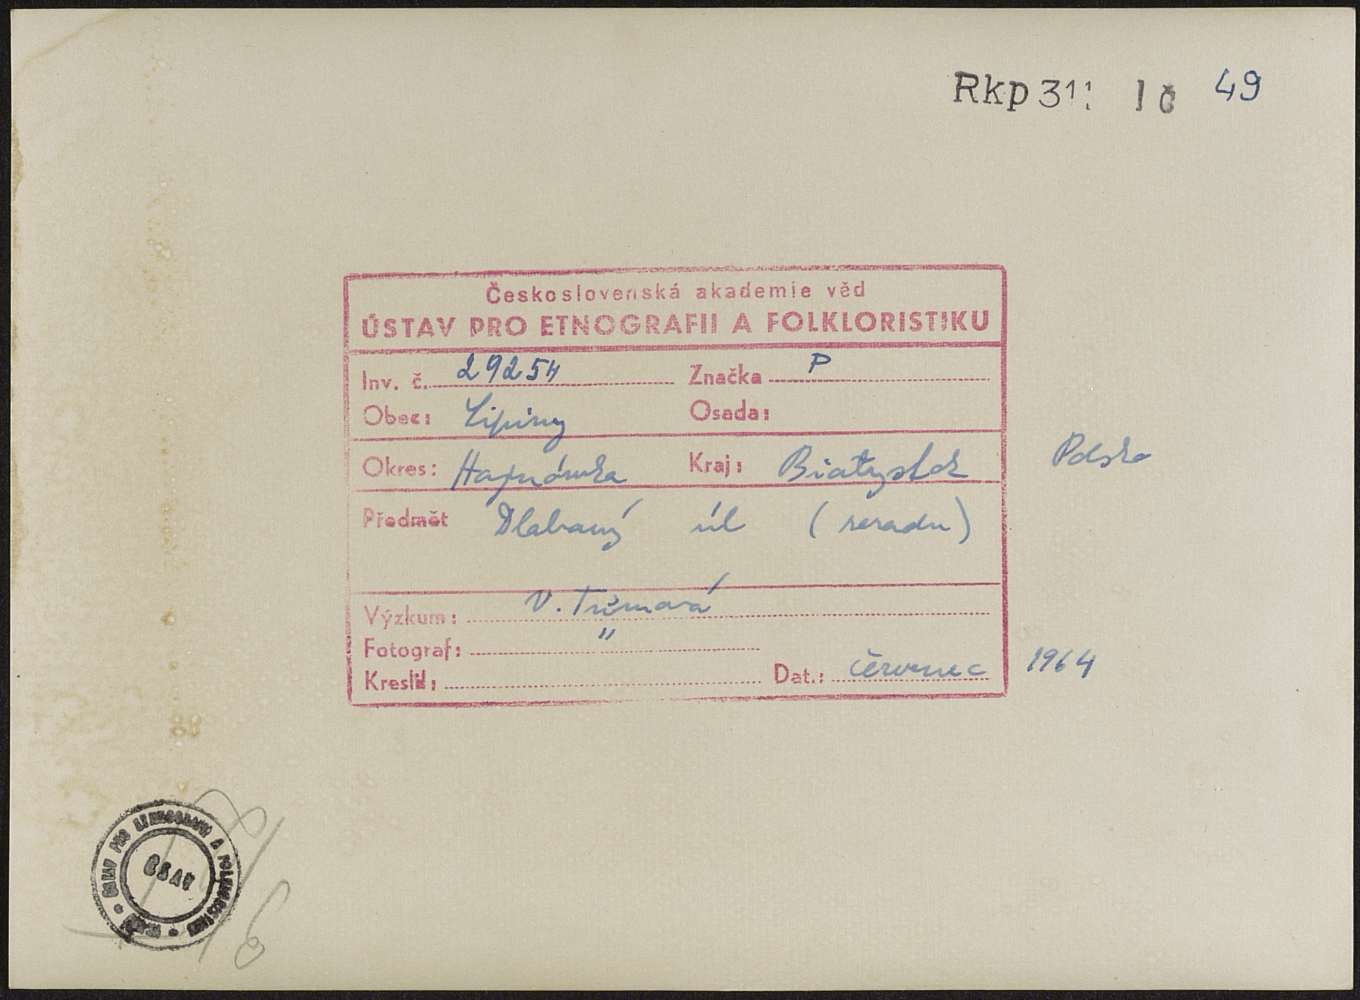 Rkp 311 ič 49
Československá akademie věd
ÚSTAV PRO ETNOGRAFII A FOLKLORISTIKU
Inv. č. 29254 Značka P
Obec: Lipiny Osada:
Okres: Hajnówka Kraj: Białystok Polsko
Předmět Dlabaný úl (zezadu)
Výzkum: V. Tůmová
Fotograf: "
Kreslil: Dat.: červenec 1964
ÚSTAV PRO ETNOGRAFII A FOLKLORISTIKU
ČSAV